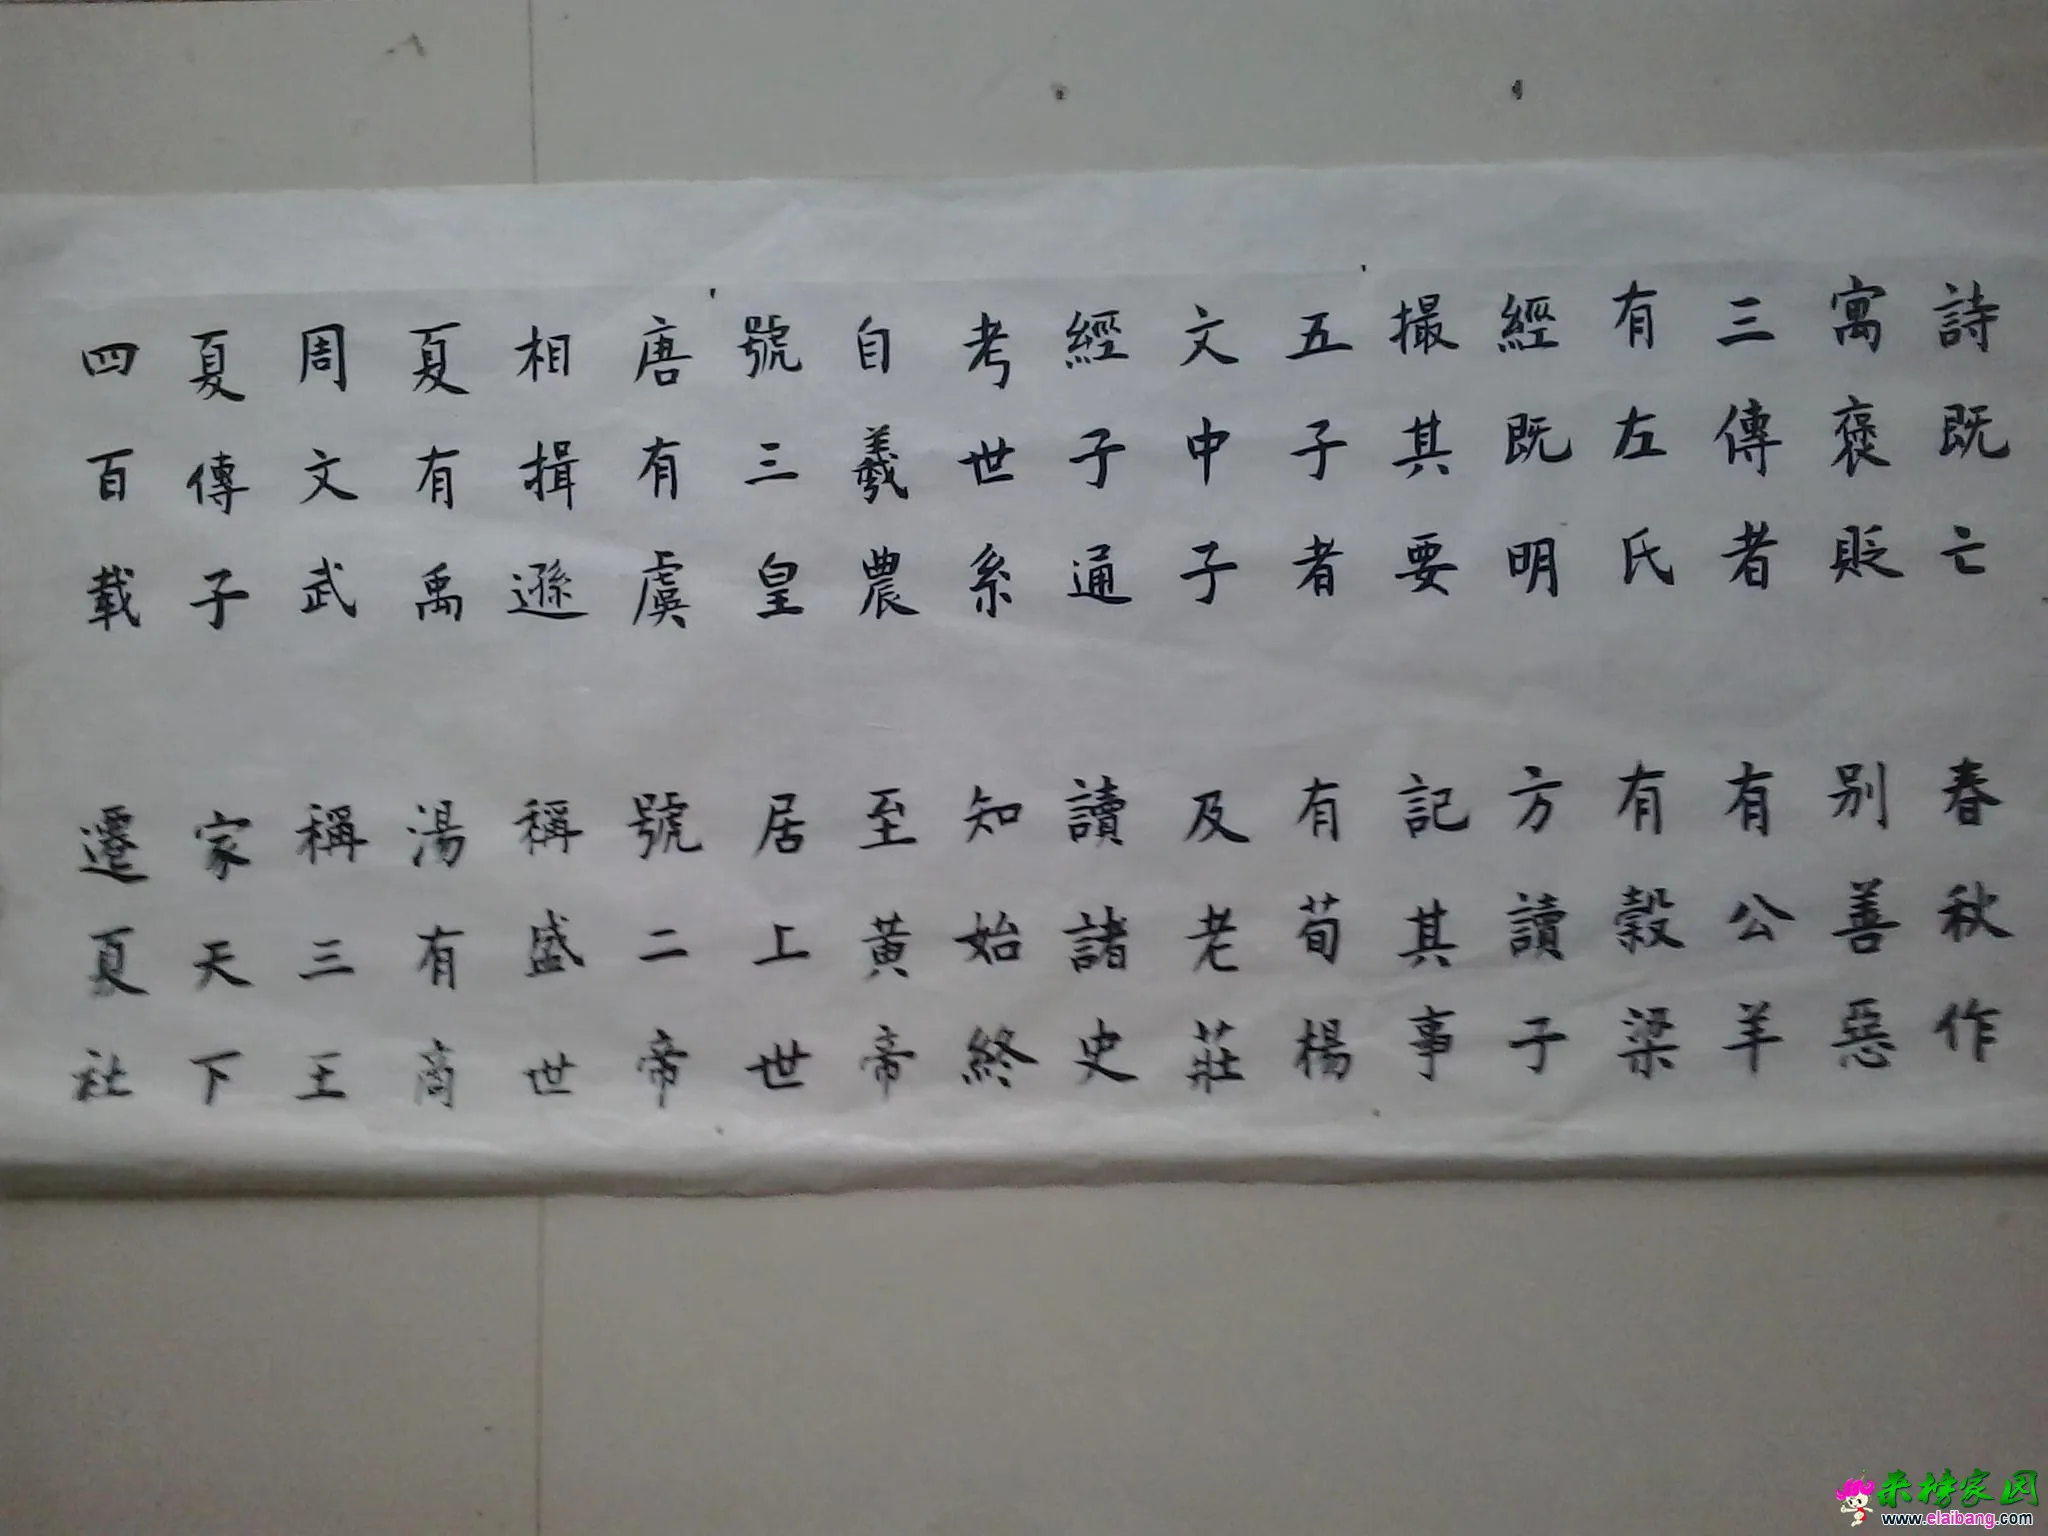 詩既亡 春秋作
寓褒貶 別善惡
三傳者 有公羊
有左氏 有穀梁
經既明 方讀子
撮其要 記其事
五子者 有荀楊
文中子 及老莊
經子通 讀諸史
考世系 知始終
自羲農 至黄帝
號三皇 居上世
唐有虞 號二帝
相揖遜 稱盛世
夏有禹 湯有商
周文武 稱三王
夏傳子 家天下
四百載 遷夏社
来榜家园
www.elaibang.com